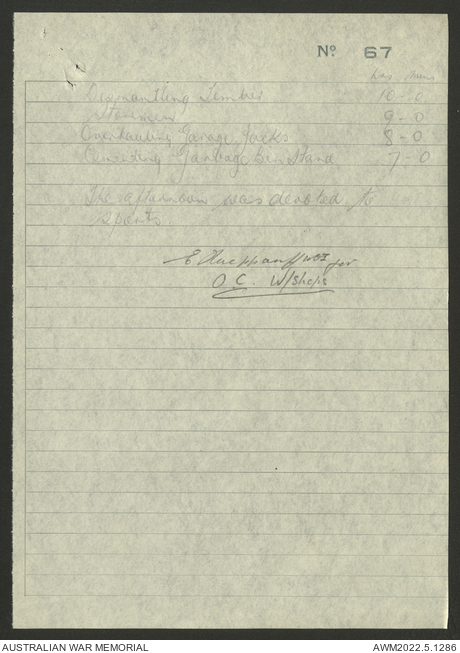 Nº 67
hrs mins
Dismantling Timber 10-0
Storemen 9-0
Overhauling Garage Jacks 8-0
Cementing Garbage Bin Stand 7-0
The afternoon was devoted to
sports
for
O C. W/Shops
AUSTRALIAN WAR MEMORIAL AWM2022.5.1286